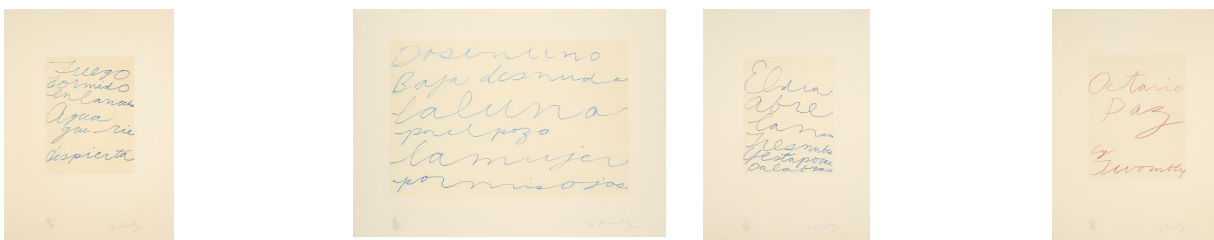 Fuego
dormido
en la noche
Agua
que ríe
despierta
Dos en uno
Baja desnuda
la luna
por el pozo
la mujer
por mis ojos
El día
abre
la mano
Tres nubes
y estas pocas
palabras
Octavio
Paz
Cy
Twombly